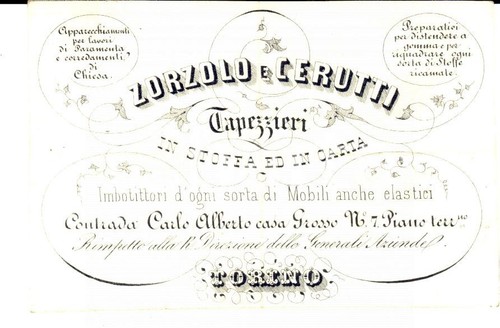 Apparecchiamenti
per lavori
di Paramenta
e corredamenti
di
Chiesa.
Preparatici
per distendere a
gomma e per
riquadrare ogni
sorta di Stoffe
ricamate.
ZORZOLO E CERUTTI
Tapezzieri
IN STOFFA ED IN CARTA
Imbotittori d'ogni sorta di Mobili anche elastici
Contrada Carlo Alberto casa Grosso Nº 7. Piano terr.no
Rimpetto alla Direzione delle Generali Aziende.
TORINO